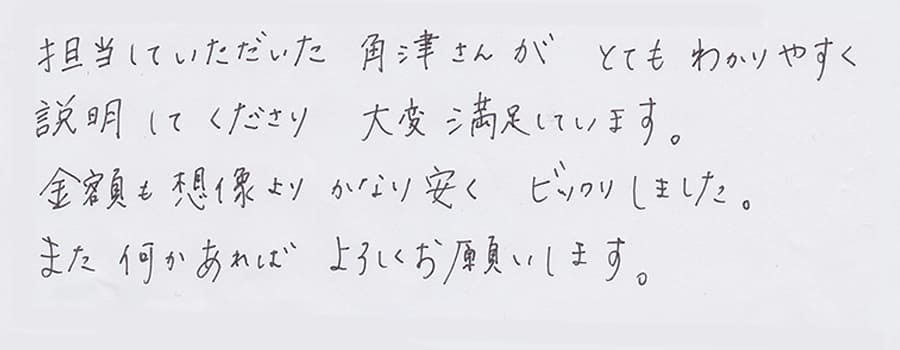 担当していただいた 角津さんが とても わかりやすく
説明 して くださり 大変 満足しています。
金額も 想像より かなり 安く ビックリしました。
また 何かあれば よろしくお願いします。